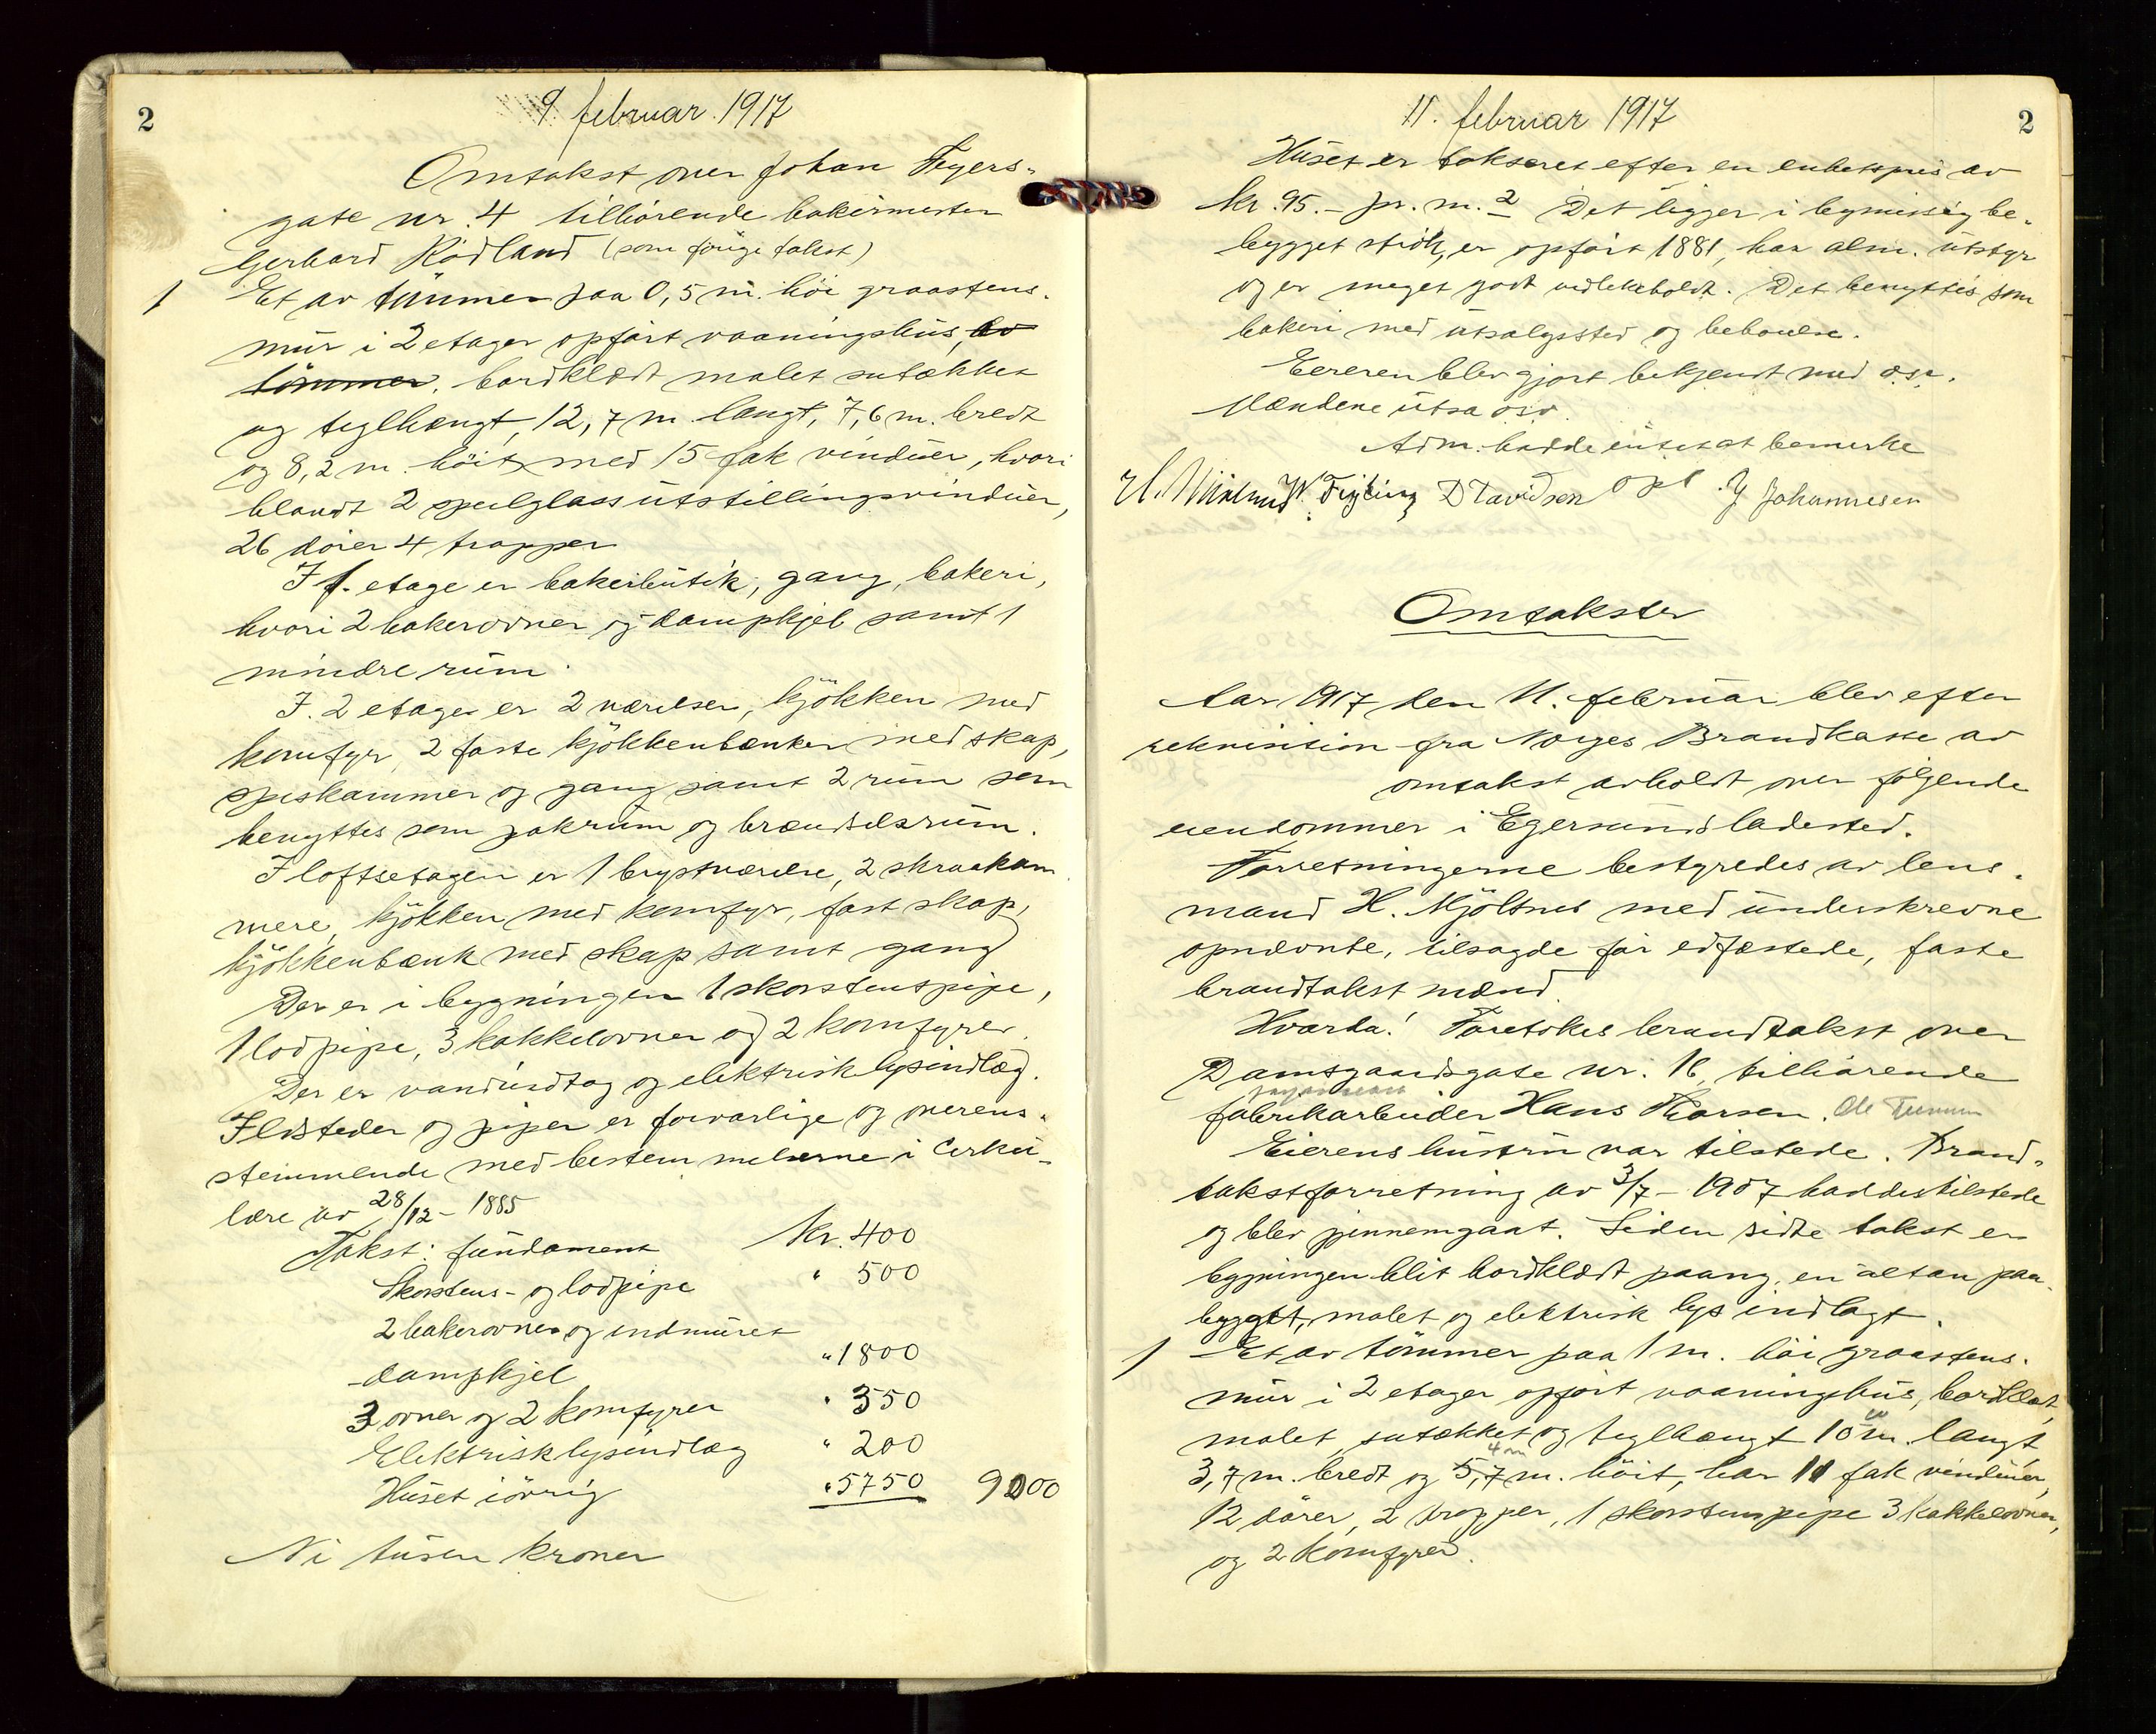 2
9. februar 1917
Omtakst over Johan Feyers-
gate nr. 4 tilhörende bakermester
Gerhard Rödland (som forrige takst)
1 Et av tömmer paa 0,5 m. höi graastens-
mur i 2 etager opfört vaaningshus, av
tömmer, bordklædt malet sutækket
og teglhængt, 12,7 m. langt, 7,6 m. bredt
og 8,2 m. höit med 15 fak vinduer, hvori
blandt 2 speilglassutstillingsvinduer,
26 dörer 4 trapper
I 1. etage er bakeributik, gang, bakeri,
hvori 2 bakerovner og dampkjel samt 1
mindre rum.
I. 2 etage er 2 værelser, kjökken med
komfyr, 2 faste kjökkenbænker med skap,
spiskammer og gang samt 2 rum som
benyttes som pakrum og brændselsrum.
I loftsetagen er 1 brystværelse, 2 skraakam
mere, kjökken med komfyr, fast skap,
kjökkenbænk med skap samt gang
Der er i bygningen 1 skorstenspipe,
1 lodpipe, 3 kakkelovner og 2 komfyrer.
Der er vandindtag og elektrisk lysindlæg.
Ildsteder og piper er forvarlige og overens-
stemmende med bestemmelserne i Cirku-
lære av 28/12 - 1885
Takst: fundament kr. 400
Skorstens- og lodpipe " 500
2 bakerovner og indmuret
dampkjel " 1800
3 ovner og 2 komfyrer " 350
Elektrisk lysindlæg " 200
Huset iövrig " 5750 9000
Ni tusen kroner
11. februar 1917
2
Huset er takseret efter en enhetspris av
kr. 95.- pr. m.2 Det ligger i bymæssig be-
bygget strök, er opfört 1881, har alm. utstyr
og er meget godt vedlikeholdt. Det benyttes som
bakeri med utsalgssted og beboelse.
Eieren blev gjort bekjendt med o.s.v.
Mændene utsa osv.
Adm. hadde intet at bemerke
H. Mjölsnes W. Feyling D Davidsen J Johannesen
Omtakster
Aar 1917 den 11. februar blev efter
rekvisition fra Norges Brandkasse av
omtakst avholdt over fölgende
eiendommer i Egersunds ladested.
Forretningerne bestyredes av lens-
mand H. Mjölsnes med underskrevne
opnævnte, tilsagde för edfæstede, faste
brandtakstmænd.
Hvorda! Foretokes brandtakst over
Damsgaardsgate nr. 16, tilhörende
fabrikarbeider Hans Thorsen.
Eierens hustru var tilstede. Brand-
takstforretning av 3/7 - 1907 haddes tilstede
og blev gjennemgaat. Siden sidste takst er
bygningen blit bordklædt paany, en altan paa-
bygget, malet og elektrisk lys indlagt.
1 Et av tömmer paa 1 m. höi graastens-
mur i 2 etager opfört vaaningshus, bordklædt,
malet, sutækket og teglhængt 10 m. langt,
3,7 m. bredt og 5,7 m. höit, har 11 fak vinduer,
12 dörer, 2 trapper, 1 skorstenspipe 3 kakkelovner,
og 2 komfyrer.